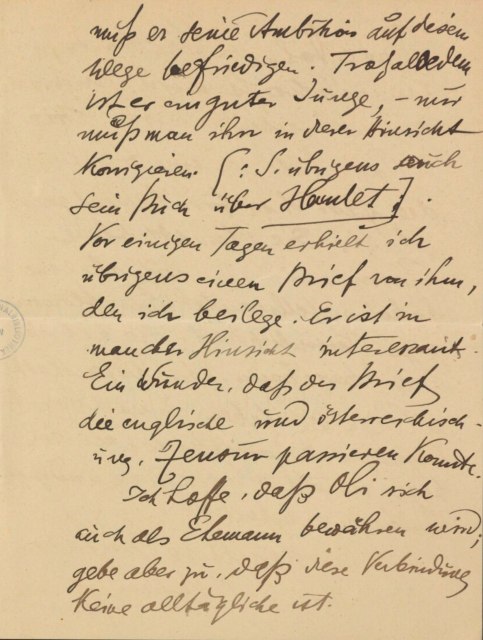 muß er seine Ambition auf diesem
Wege befriedigen. Trotz alledem
ist er ein guter Junge, – nur
muß man ihn in dieser Hinsicht
korrigieren. [: S. übrigens auch
sein Buch über Hamlet].
Vor einigen Tagen erhielt ich
übrigens einen Brief von ihm,
den ich beilege. Er ist in
mancher Hinsicht interessant.
Ein Wunder, daß der Brief
die englische und österreichisch-
ung. Zensur passieren konnte.
Ich hoffe, daß sich
auch als Ehemann bewähren wird;
gebe aber zu, daß diese Verbindung
keine alltägliche ist.